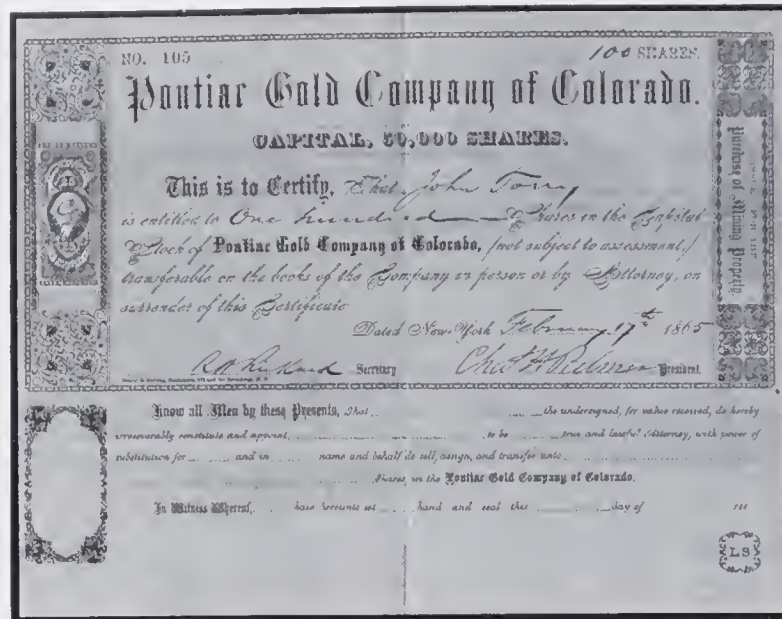 NO. 105
100 SHARES.
Pontiac Gold Company of Colorado.
CAPITAL, 50,000 SHARES.
This is to Certify, That John Torry
is entitled to One hundred Shares in the Capital
Stock of Pontiac Gold Company of Colorado, (not subject to assessment,)
transferable on the books of the Company in person or by Attorney, on
surrender of this Certificate
Dated New-York February 17th 1865
Secretary
Chas H President
Purchase of Mining Property
Know all Men by these Presents, That the undersigned, for value received, do hereby
irrevocably constitute and appoint, to be true and lawful Attorney, with power of
substitution for and in name and behalf do sell, assign, and transfer unto
Shares, in the Pontiac Gold Company of Colorado.
In Witness Whereof, have hereunto set hand and seal this day of 186
LS